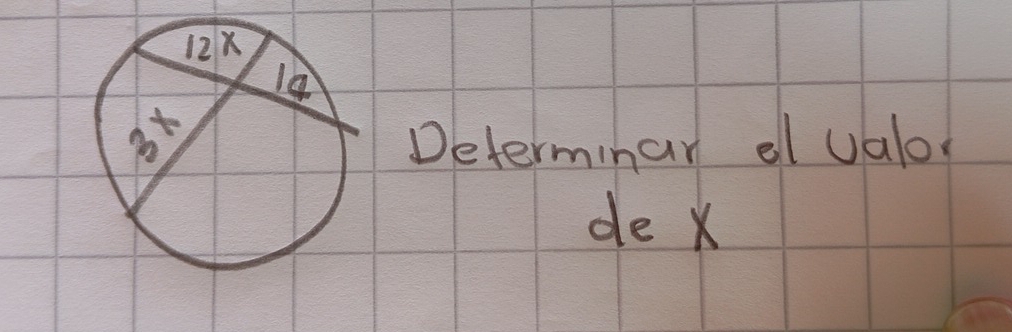 12 x
14
3x
Determinar el valor
de x